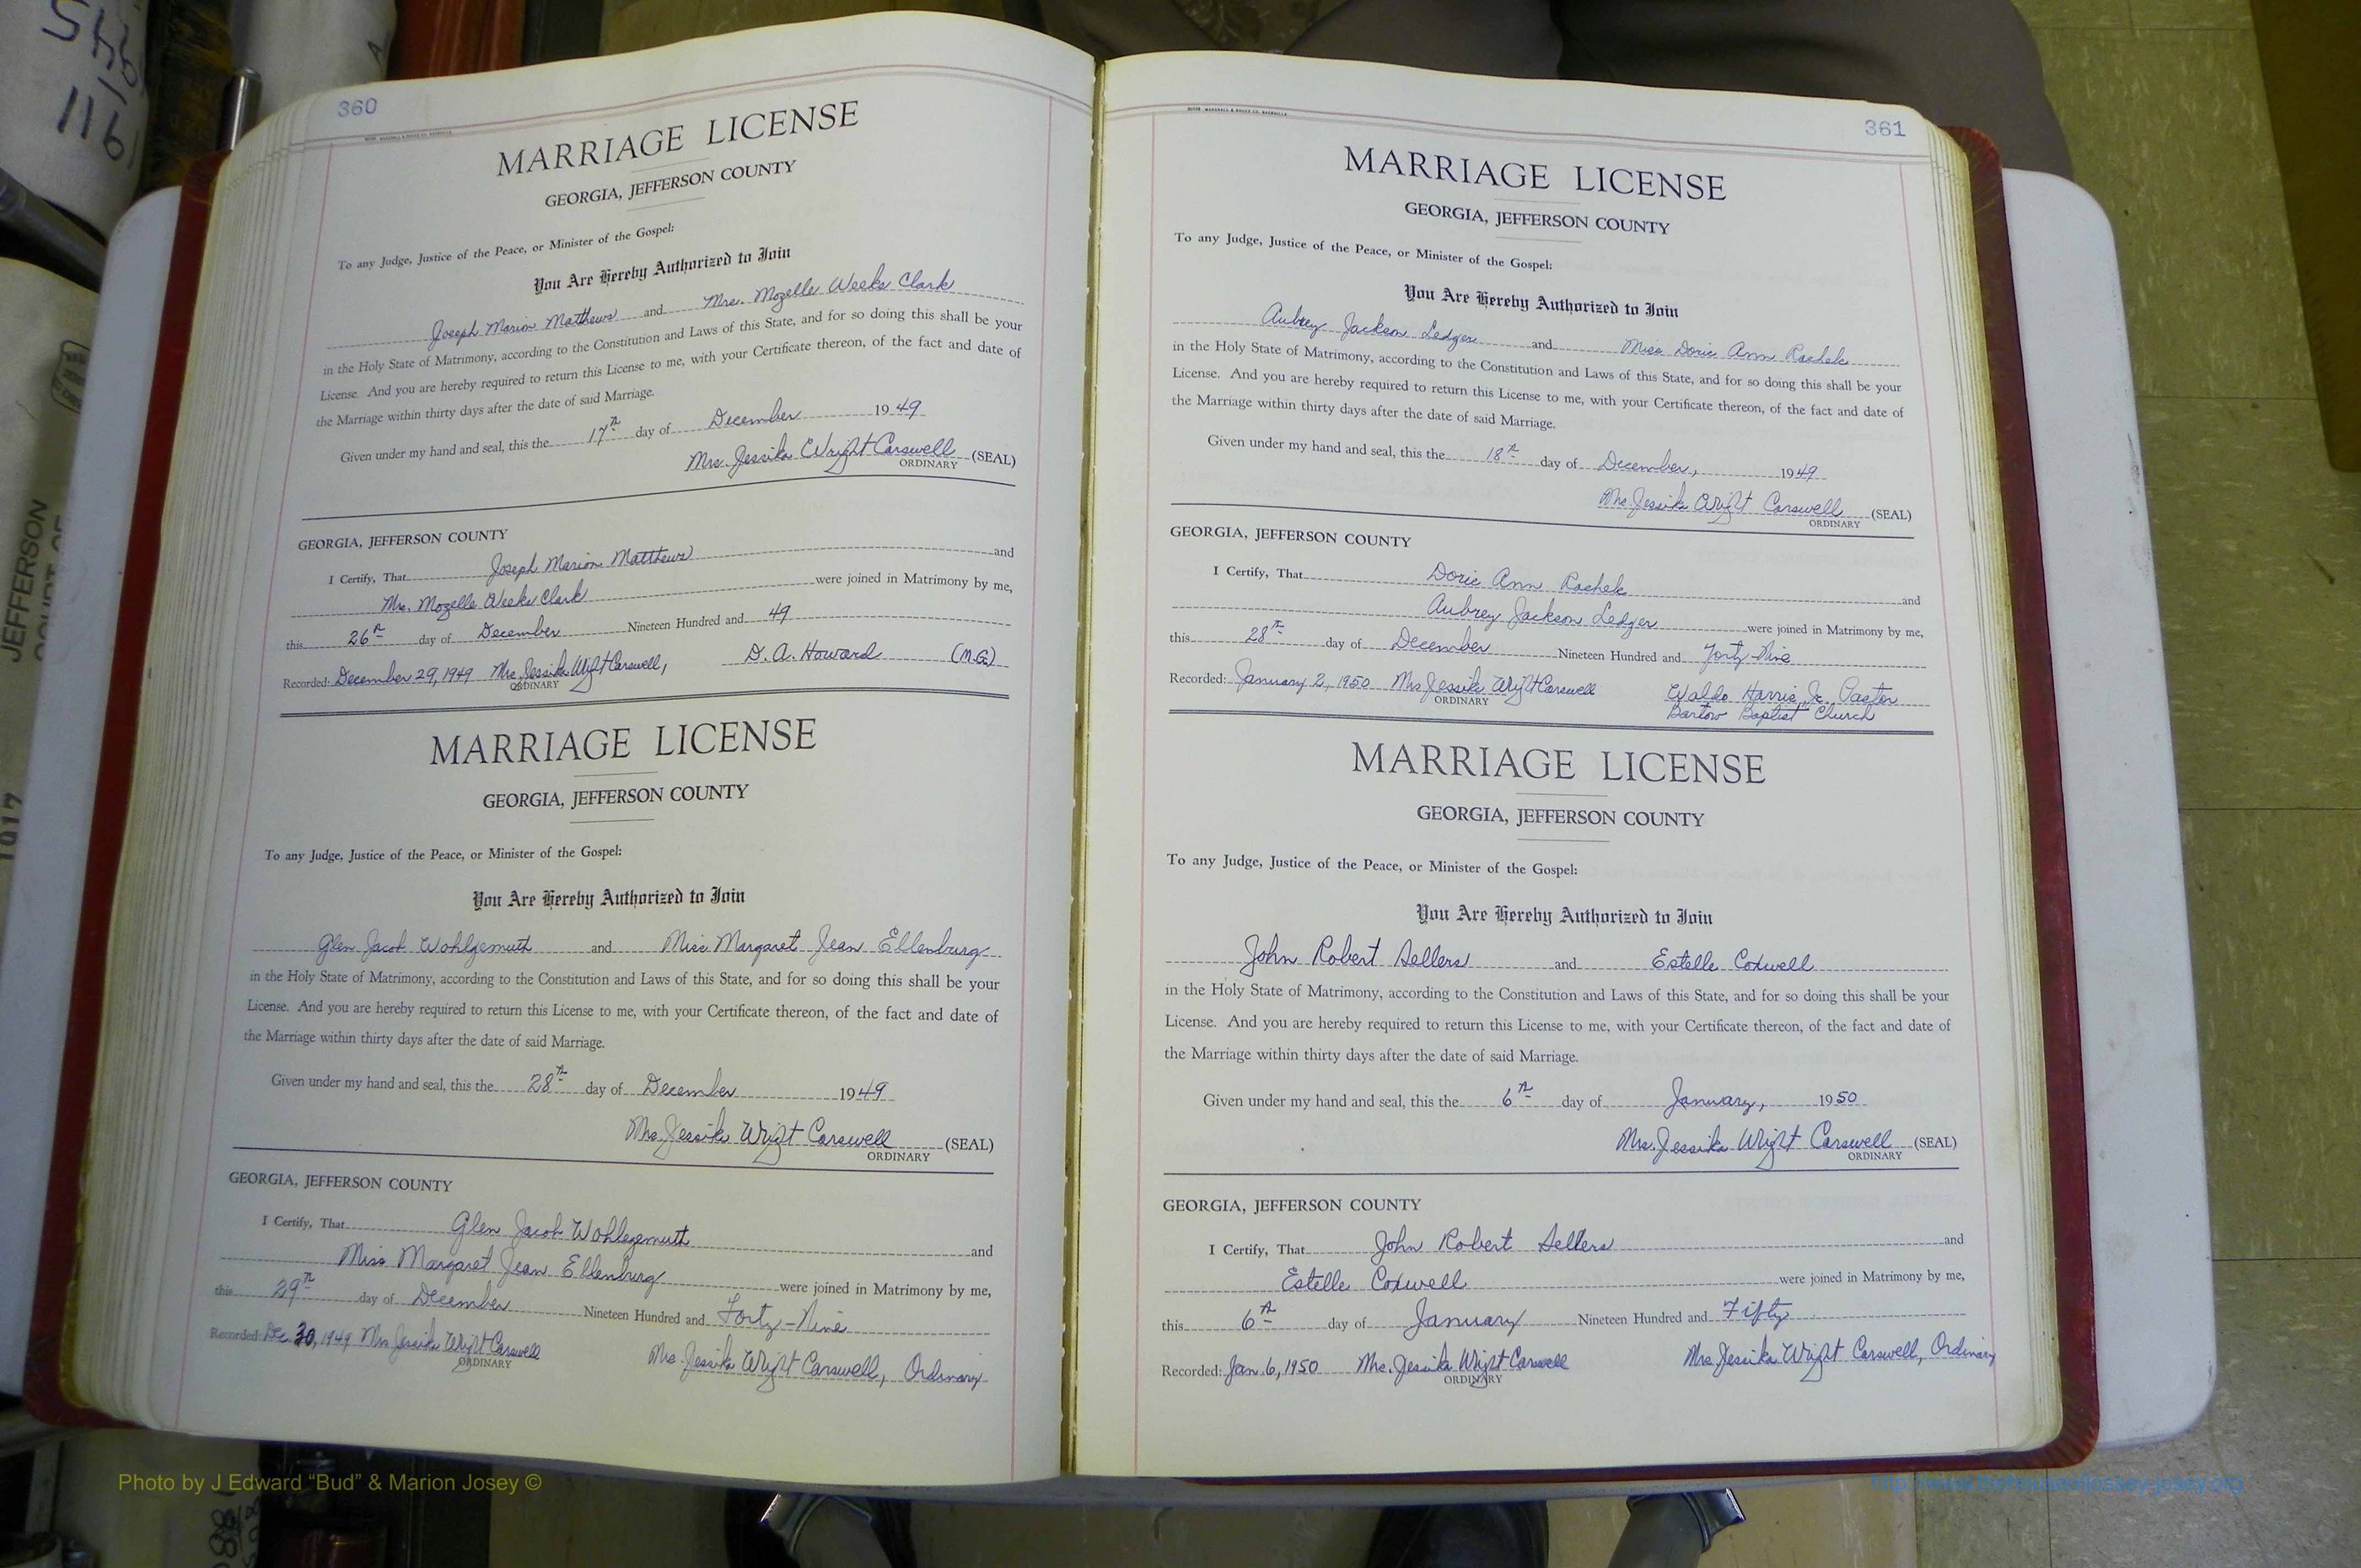 360
MARRIAGE LICENSE
GEORGIA, JEFFERSON COUNTY
To any Judge, Justice of the Peace, or Minister of the Gospel:
You Are Hereby Authorized to Join
Joseph Marion Matthews and Mrs. Mozelle Weeks Clark
in the Holy State of Matrimony, according to the Constitution and Laws of this State, and for so doing this shall be your
License. And you are hereby required to return this License to me, with your Certificate thereon, of the fact and date of
the Marriage within thirty days after the date of said Marriage.
Given under my hand and seal, this the 17th day of December 1949
Mrs. Jessika Wright Carswell (SEAL)
ORDINARY
GEORGIA, JEFFERSON COUNTY
I Certify, That Joseph Marion Matthews and
Mrs. Mozelle Weeks Clark were joined in Matrimony by me,
this 26th day of December Nineteen Hundred and 49
Recorded: December 29, 1949 Mrs. Jessika Wright Carswell, D. A. Howard (M.G.)
ORDINARY
MARRIAGE LICENSE
GEORGIA, JEFFERSON COUNTY
To any Judge, Justice of the Peace, or Minister of the Gospel:
You Are Hereby Authorized to Join
Glen Jacob Wohlgemuth and Miss Margaret Jean Ellenburg
in the Holy State of Matrimony, according to the Constitution and Laws of this State, and for so doing this shall be your
License. And you are hereby required to return this License to me, with your Certificate thereon, of the fact and date of
the Marriage within thirty days after the date of said Marriage.
Given under my hand and seal, this the 28th day of December 1949
Mrs. Jessika Wright Carswell (SEAL)
ORDINARY
GEORGIA, JEFFERSON COUNTY
I Certify, That Glen Jacob Wohlegemuth and
Miss Margaret Jean Ellenburg were joined in Matrimony by me,
this 29th day of December Nineteen Hundred and Forty-Nine
Recorded: Dec. 30, 1949 Mrs Jessika Wright Carswell Mrs. Jessika Wright Carswell, Ordinary
ORDINARY
361
MARRIAGE LICENSE
GEORGIA, JEFFERSON COUNTY
To any Judge, Justice of the Peace, or Minister of the Gospel:
You Are Hereby Authorized to Join
Aubrey Jackson Ledger and Miss Doris Ann Rachels
in the Holy State of Matrimony, according to the Constitution and Laws of this State, and for so doing this shall be your
License. And you are hereby required to return this License to me, with your Certificate thereon, of the fact and date of
the Marriage within thirty days after the date of said Marriage.
Given under my hand and seal, this the 18th day of December, 1949
Mrs. Jessika Wright Carswell (SEAL)
ORDINARY
GEORGIA, JEFFERSON COUNTY
I Certify, That Doris Ann Rachels and
Aubrey Jackson Ledger were joined in Matrimony by me,
this 28th day of December Nineteen Hundred and Forty-Nine
Recorded: January 2, 1950 Mrs Jessika Wright Carswell Waldo Harris, Jr. Pastor
ORDINARY Bartow Baptist Church
MARRIAGE LICENSE
GEORGIA, JEFFERSON COUNTY
To any Judge, Justice of the Peace, or Minister of the Gospel:
You Are Hereby Authorized to Join
John Robert Sellers and Estelle Coxwell
in the Holy State of Matrimony, according to the Constitution and Laws of this State, and for so doing this shall be your
License. And you are hereby required to return this License to me, with your Certificate thereon, of the fact and date of
the Marriage within thirty days after the date of said Marriage.
Given under my hand and seal, this the 6th day of January, 1950
Mrs. Jessika Wright Carswell (SEAL)
ORDINARY
GEORGIA, JEFFERSON COUNTY
I Certify, That John Robert Sellers and
Estelle Coxwell were joined in Matrimony by me,
this 6th day of January Nineteen Hundred and Fifty
Recorded: Jan. 6, 1950 Mrs. Jessika Wright Carswell Mrs. Jessika Wright Carswell, Ordinary
ORDINARY
JEFFERSON
Photo by J Edward “Bud” & Marion Josey ©